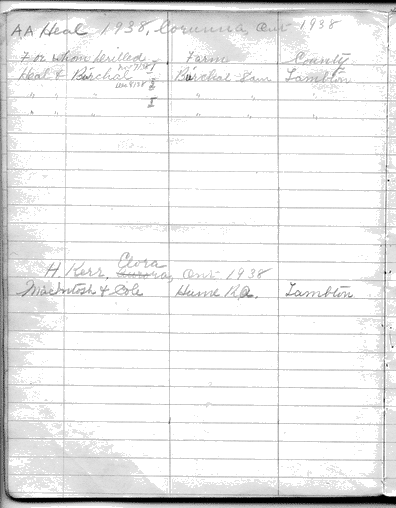 AA Heal 1938, Corunna, Ont 1938
For whom Drilled Farm County
Heal & Birchal Nov 7/38 I Birchal Sam Lambton
" " " Dec 9/38 " " "
" " " I " " "
H Kerr, Clora Ont 1938
MacIntosh & Cole Hume Rd. Lambton